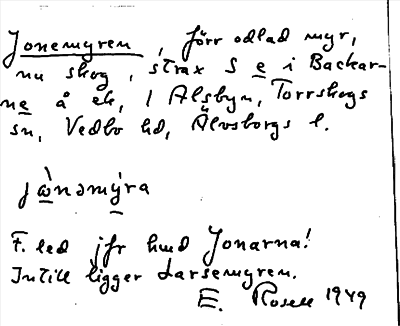 Jonemyren, förr odlad myr,
nu skog, strax S e i Backar-
ne å ek, i Alsbyn, Torrskogs
sn, Vedbo hd, Älvsborgs l.
jὼnəmýra
F. led jfr hmd Jonarna!
Intill ligger Larsemyren.
E. Rosell 1949